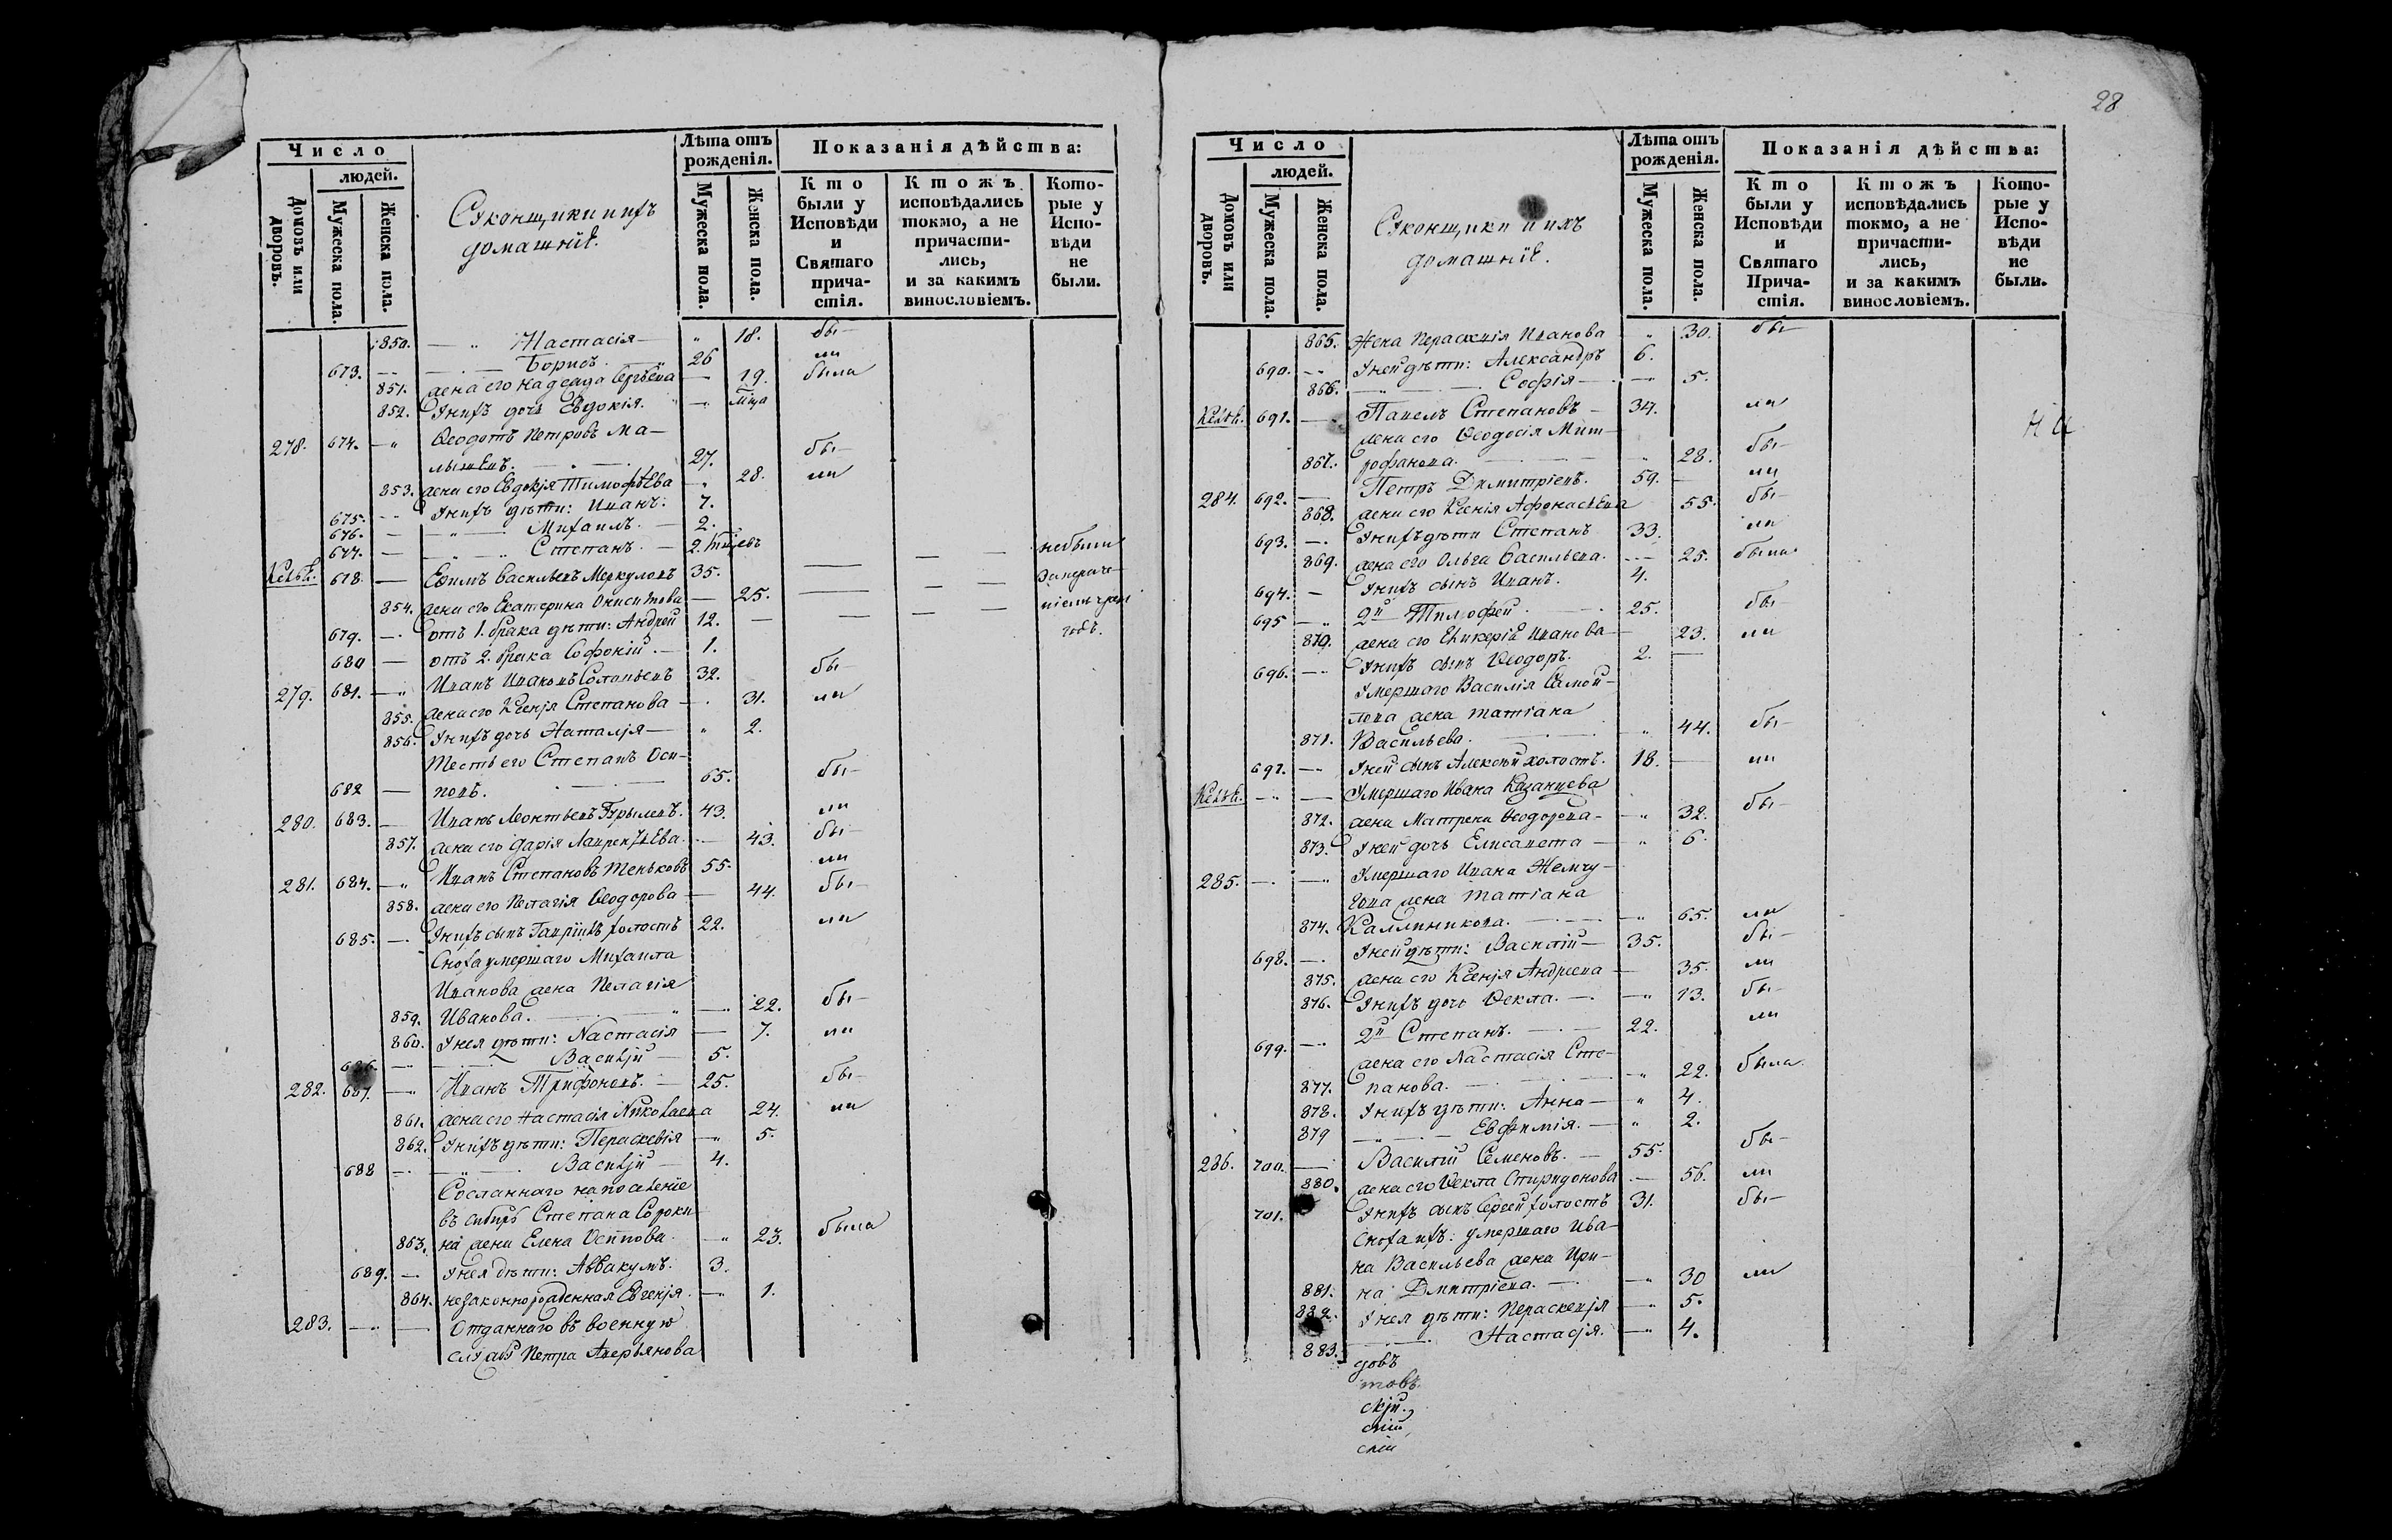 28
Число
людей.
Домовъ или дворовъ.
Мужеска пола.
Женска пола.
Суконщики и ихъ
домашніе.
Лѣта отъ
рожденія.
Мужеска пола.
Женска пола.
Показанія дѣйства:
Кто
были у
Исповѣди
и
Святаго
прича-
стія.
Ктожъ
исповѣдались
токмо, а не
причасти-
лись,
и за какимъ
винословіемъ.
Кото-
рые у
Испо-
вѣди
не
были.
850. — " Настасія — " 18. бы-
673. — Борисъ. 26 ли
851. жена его Надежда Сергѣева — 19. была
852. У нихъ дочь Евдокія. — м͠ца
278. 674. — " Ѳеодотъ Петровъ Ма-
лышевъ. — 27. бы-
853. жена его Евдокія Тимофѣева — " 28. ли
675. — У нихъ дѣти: Иванъ. 7.
676. — " — Михаилъ. — 2.
677. — " — " Степанъ. — 2. м͠цевъ
678. — Ефимъ Васильевъ Меркуловъ 35. — небыли
854. жена его Екатерина Онисимова — 25. —
679. — отъ 1. брака дѣти: Андрей 12. —
680 — отъ 2. брака Софоній. — 1.
279. 681. — " Иванъ Ивановъ Соловьевъ 32. бы-
855. жена его Ксенія Степанова — 31. ли
856. У нихъ дочь Наталія — " 2.
Тесть его Степанъ Оси-
682 — повъ. — 65. бы-
280. 683. — Иванъ Леонтьевъ 43. ли
857. жена его Дарія Лаврентьева. — 43. бы-
281. 684. — " Иванъ Степановъ Теньковъ 55. ли
858. жена его Пелагія Ѳеодорова — 44. бы-
685. — У нихъ сынъ Гавріилъ холостъ 22. ли
Сноха умершаго Михаила
Иванова жена Пелагія
859. Иванова. — " — 22. бы-
860. У нея дѣти: Настасія — 7. ли
686. — Василій — 5.
282. 687. — Иванъ Трифоновъ. — 25. бы-
861. жена его Настасія Николаева 24. ли
862. У нихъ дѣти: Параскевія — " 5.
688 — " — Василій — 4.
Сосланнаго на поселеніе
въ Сибирь Степана Сороки-
863. на жена Елена Осипова. — " 23. была
689. — У нея дѣти: Аввакумъ. 3.
864. незаконнорожденная Евгенія. — 1.
283. — Отданнаго въ военную
службу Петра Аверьянова
Число
людей.
Домовъ или дворовъ.
Мужеска пола.
Женска пола.
Суконщики и ихъ
домашніе.
Лѣта отъ
рожденія.
Мужеска пола.
Женска пола.
Показанія дѣйства:
Кто
были у
Исповѣди
и
Святаго
Прича-
стія.
Ктожъ
исповѣдались
токмо, а не
причасти-
лись,
и за какимъ
винословіемъ.
Кото-
рые у
Испо-
вѣди
не
были.
865. Жена Параскевія Иванова " 30. бы-
690. — У ней дѣти: Александръ 6.
866. — " — Софія — 5.
691. — Павелъ Степановъ — 34. ли
жена его Ѳеодосія Мит-
867. рофанова. — " 28. бы-
284. 692. — Петръ Димитріевъ. 59. — ли
868. жена его Ксенія Афонасьева 55. бы-
693. — У нихъ дѣти Степанъ 33. ли
869. жена его Ольга Васильева. — 25. была
694. — У нихъ сынъ Иванъ. 4.
695 — " 2й Тимофей. 25. бы-
870. жена его Гликерія Иванова — 23. ли
696. — У нихъ сынъ Ѳеодоръ. 2. —
Умершаго Василія Самой-
лова жена Татіана
871. Васильева. — " 44. бы-
697. — У ней сынъ Алексѣй холостъ. 18. — ли
— " — Умершаго Ивана Казанцева
872. жена Матрена Ѳеодорова — " 32. бы-
873. У ней дочь Елисавета — " 6.
285. — " Умершаго Ивана Жемчу-
гова жена Татіана
874. Каллиникова. — " 65. ли
698. — У ней дѣти: Василій — 35. бы-
875. жена его Ксенія Андреева — 35. ли
876. У нихъ дочь Ѳекла. — " 13. бы-
699. — 2й Степанъ. — 22. ли
жена его Настасія Сте-
877. панова. — " 22. была
878. У нихъ дѣти: Анна — " 4.
879 — " — Евфимія. — " 2.
286. 700. — Василій Семеновъ. — 55. бы-
880. жена его Ѳекла Спиридонова — 56. ли
701. У нихъ сынъ Сергей холостъ 31. бы-
Сноха ихъ: умершаго Ива-
на Васильева жена Ири-
881. на Дмитріева. — " 30 ли
882. У нея дѣти: Параскевія — " 5.
883. — Настасія. — " 4.
довъ
товъ
скій.